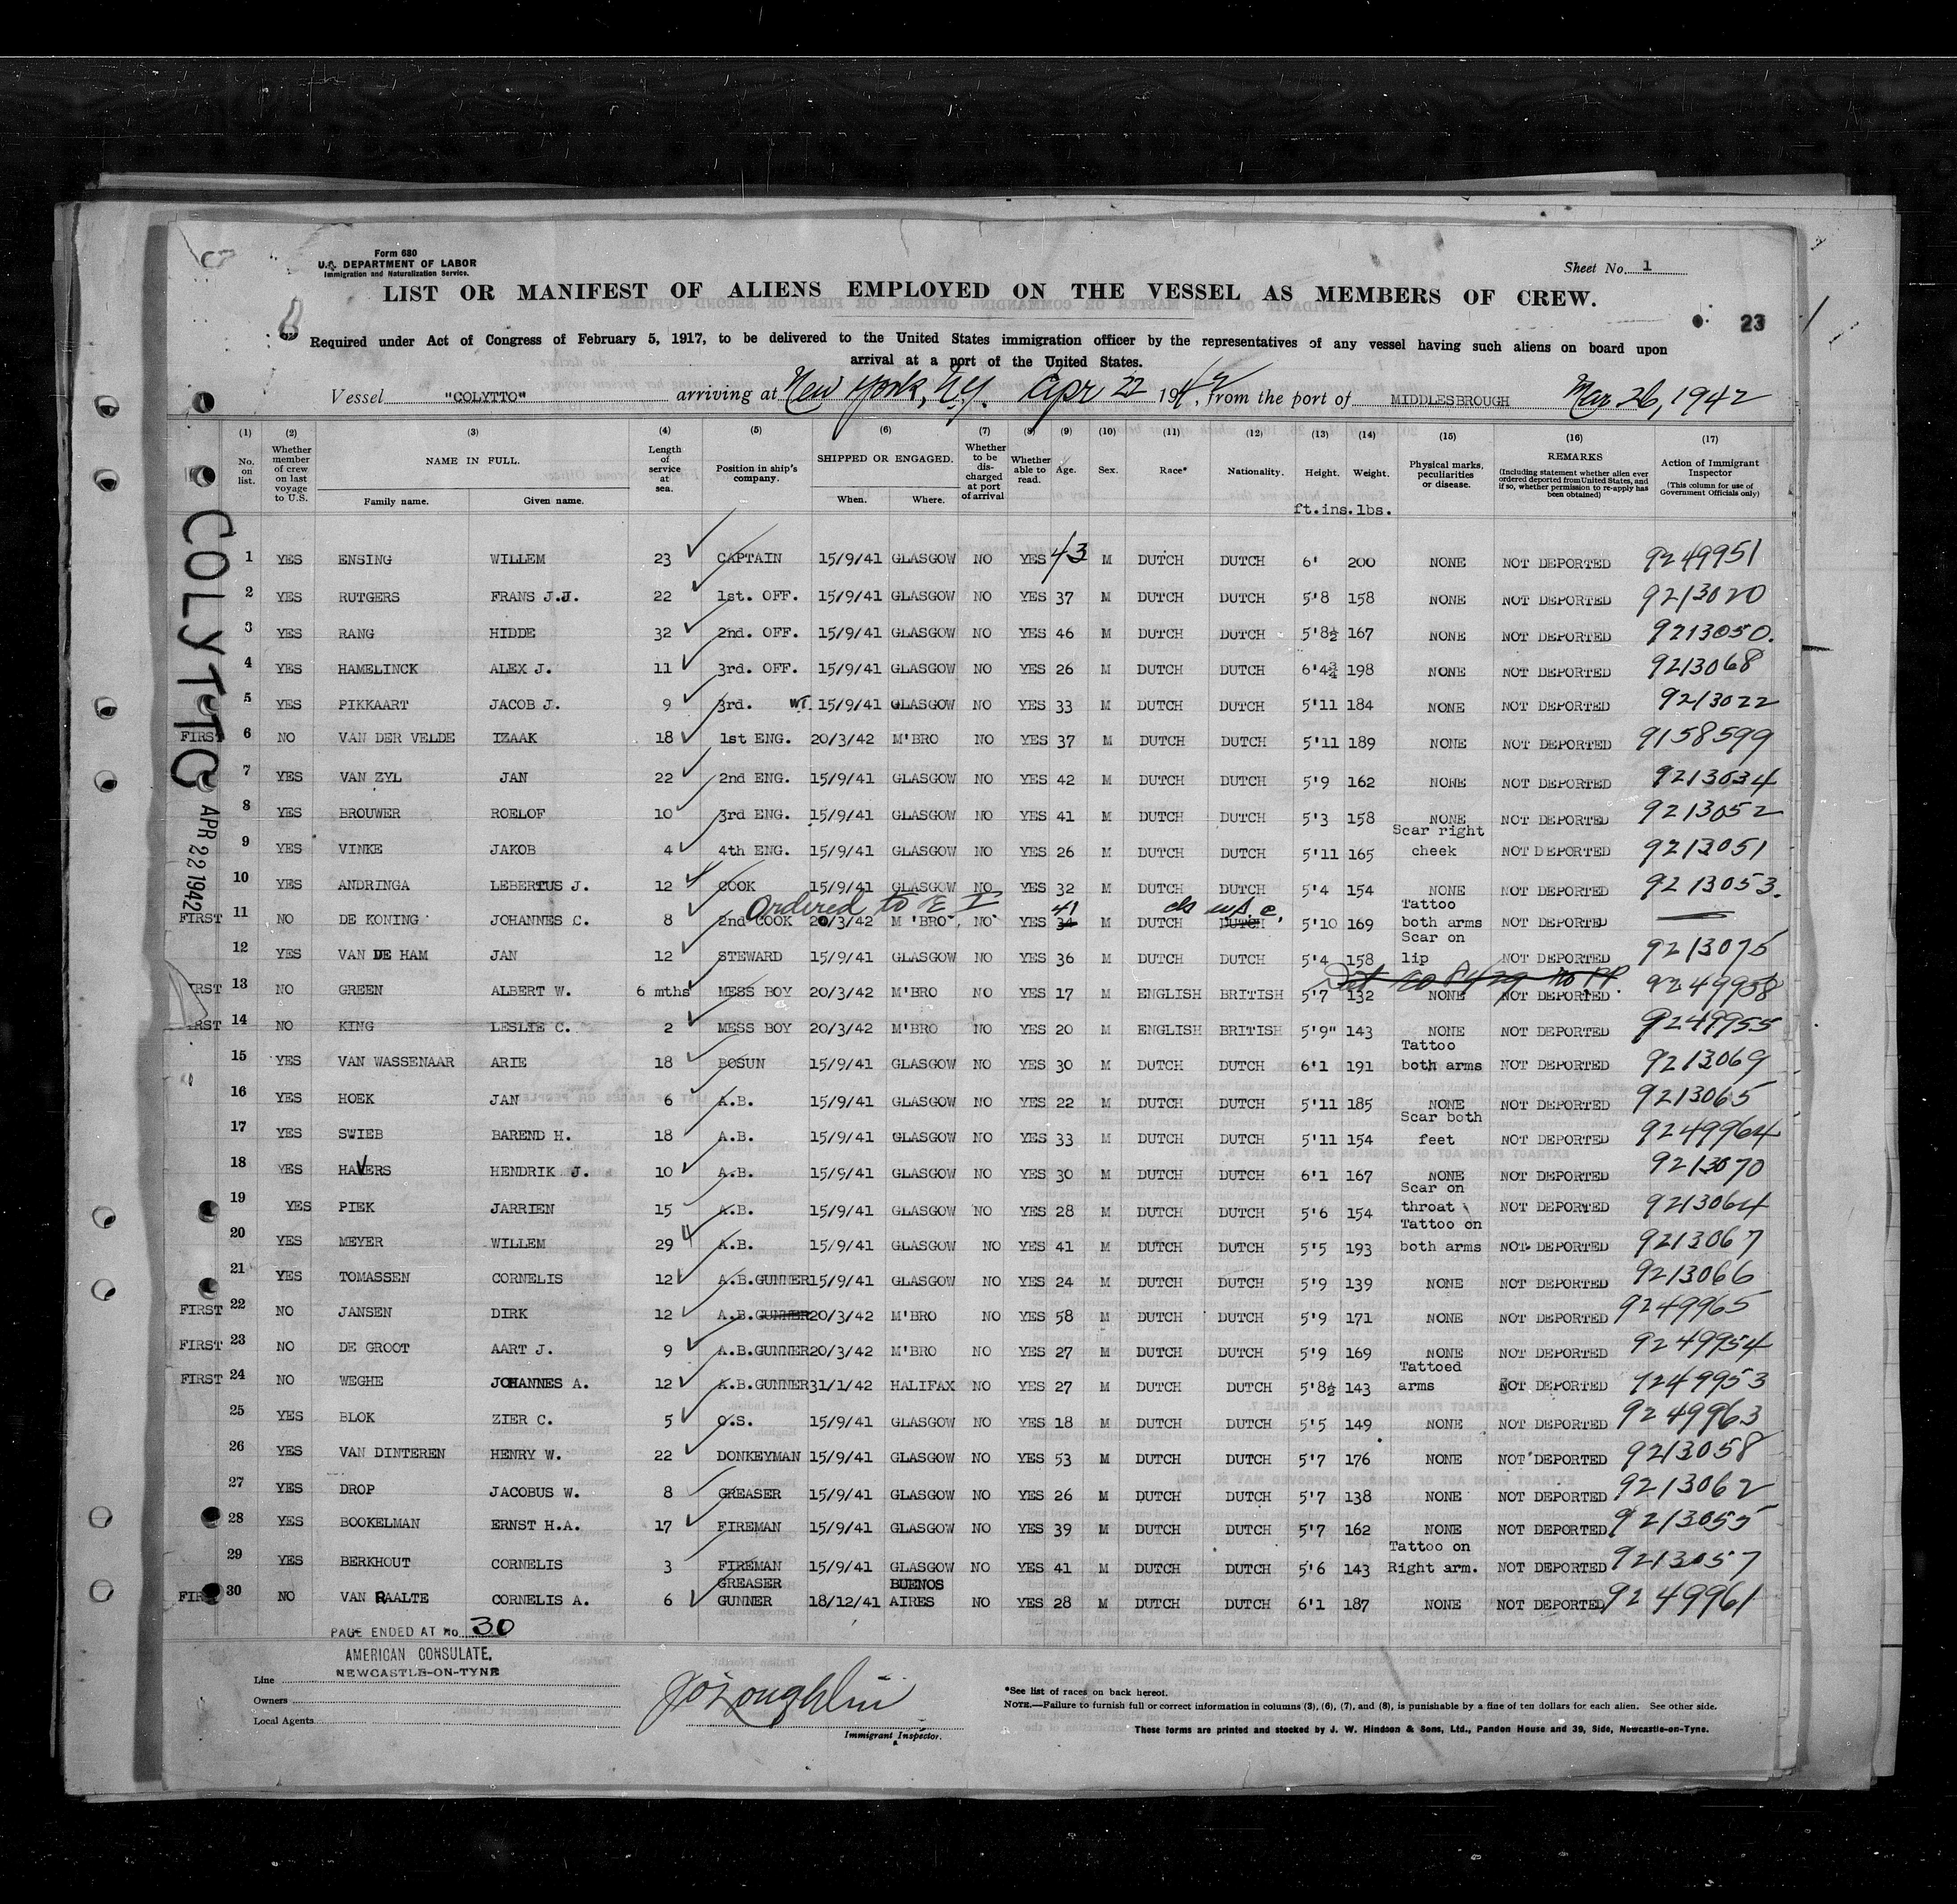 Form 680
U.S. DEPARTMENT OF LABOR
Immigration and Naturalization Service.
Sheet No. 1
LIST OR MANIFEST OF ALIENS EMPLOYED ON THE VESSEL AS MEMBERS OF CREW.
23
Required under Act of Congress of February 5, 1917, to be delivered to the United States immigration officer by the representatives of any vessel having such aliens on board upon
arrival at a port of the United States.
Vessel "COLYTTO" arriving at New York, N.Y. Apr 22 1942, from the port of MIDDLESBROUGH Mar 26, 1942
(1) (2) (3) (4) (5) (6) (7) (8) (9) (10) (11) (12) (13) (14) (15) (16) (17)
No. on list.
Whether member of crew on last voyage to U.S.
NAME IN FULL.
Family name. Given name.
Length of service at sea.
Position in ship's company.
SHIPPED OR ENGAGED.
When. Where.
Whether to be discharged at port of arrival
Whether able to read.
Age.
Sex.
Race*
Nationality.
Height.
Weight.
ft.ins. lbs.
Physical marks, peculiarities or disease.
REMARKS
(Including statement whether alien ever ordered deported from United States, and if so, whether permission to re-apply has been obtained)
Action of Immigrant Inspector
(This column for use of Government Officials only)
COLYTTO
APR 22 1942
1 YES ENSING WILLEM 23 CAPTAIN 15/9/41 GLASGOW NO YES 43 M DUTCH DUTCH 6' 200 NONE NOT DEPORTED 9249951
2 YES RUTGERS FRANS J.J. 22 1st. OFF. 15/9/41 GLASGOW NO YES 37 M DUTCH DUTCH 5'8 158 NONE NOT DEPORTED 9213020
3 YES RANG HIDDE 32 2nd. OFF. 15/9/41 GLASGOW NO YES 46 M DUTCH DUTCH 5'8½ 167 NONE NOT DEPORTED 9213050.
4 YES HAMELINCK ALEX J. 11 3rd. OFF. 15/9/41 GLASGOW NO YES 26 M DUTCH DUTCH 6'4¾ 198 NONE NOT DEPORTED 9213068
5 YES PIKKAART JACOB J. 9 3rd. WT. 15/9/41 GLASGOW NO YES 33 M DUTCH DUTCH 5'11 184 NONE NOT DEPORTED 9213022
FIRST 6 NO VAN DER VELDE IZAAK 18 1st ENG. 20/3/42 M'BRO NO YES 37 M DUTCH DUTCH 5'11 189 NONE NOT DEPORTED 9158599
7 YES VAN ZYL JAN 22 2nd ENG. 15/9/41 GLASGOW NO YES 42 M DUTCH DUTCH 5'9 162 NONE NOT DEPORTED 9213034
8 YES BROUWER ROELOF 10 3rd ENG. 15/9/41 GLASGOW NO YES 41 M DUTCH DUTCH 5'3 158 NONE NOT DEPORTED 9213052
9 YES VINKE JAKOB 4 4th ENG. 15/9/41 GLASGOW NO YES 26 M DUTCH DUTCH 5'11 165 Scar right cheek NOT DEPORTED 9213051
10 YES ANDRINGA LEBERTUS J. 12 COOK 15/9/41 GLASGOW NO YES 32 M DUTCH DUTCH 5'4 154 NONE NOT DEPORTED 9213053.
Ordered to E I 41
FIRST 11 NO DE KONING JOHANNES C. 8 2nd COOK 20/3/42 M'BRO NO YES 34 M DUTCH DUTCH 5'10 169 Tattoo both arms NOT DEPORTED
12 YES VAN DE HAM JAN 12 STEWARD 15/9/41 GLASGOW NO YES 36 M DUTCH DUTCH 5'4 158 Scar on lip NOT DEPORTED 9213075
FIRST 13 NO GREEN ALBERT W. 6 mths MESS BOY 20/3/42 M'BRO NO YES 17 M ENGLISH BRITISH 5'7 132 NONE NOT DEPORTED 9249958
FIRST 14 NO KING LESLIE C. 2 MESS BOY 20/3/42 M'BRO NO YES 20 M ENGLISH BRITISH 5'9" 143 NONE NOT DEPORTED 9249955
15 YES VAN WASSENAAR ARIE 18 BOSUN 15/9/41 GLASGOW NO YES 30 M DUTCH DUTCH 6'1 191 Tattoo both arms NOT DEPORTED 9213069
16 YES HOEK JAN 6 A.B. 15/9/41 GLASGOW NO YES 22 M DUTCH DUTCH 5'11 185 NONE NOT DEPORTED 9213065
17 YES SWIEB BAREND H. 18 A.B. 15/9/41 GLASGOW NO YES 33 M DUTCH DUTCH 5'11 154 Scar both feet NOT DEPORTED 9249964
18 YES HAVERS HENDRIK J. 10 A.B. 15/9/41 GLASGOW NO YES 30 M DUTCH DUTCH 6'1 167 NONE NOT DEPORTED 9213070
19 YES PIEK JARRIEN 15 A.B. 15/9/41 GLASGOW NO YES 28 M DUTCH DUTCH 5'6 154 Scar on throat NOT DEPORTED 9213064
20 YES MEYER WILLEM 29 A.B. 15/9/41 GLASGOW NO YES 41 M DUTCH DUTCH 5'5 193 Tattoo on both arms NOT DEPORTED 9213067
21 YES TOMASSEN CORNELIS 12 A.B.GUNNER 15/9/41 GLASGOW NO YES 24 M DUTCH DUTCH 5'9 139 NONE NOT DEPORTED 9213066
FIRST 22 NO JANSEN DIRK 12 A.B.GUNNER 20/3/42 M'BRO NO YES 58 M DUTCH DUTCH 5'9 171 NONE NOT DEPORTED 9249965
FIRST 23 NO DE GROOT AART J. 9 A.B.GUNNER 20/3/42 M'BRO NO YES 27 M DUTCH DUTCH 5'9 169 NONE NOT DEPORTED 9249954
FIRST 24 NO WEGHE JOHANNES A. 12 A.B.GUNNER 31/1/42 HALIFAX NO YES 27 M DUTCH DUTCH 5'8½ 143 Tattoed arms NOT DEPORTED 9249953
25 YES BLOK ZIER C. 5 O.S. 15/9/41 GLASGOW NO YES 18 M DUTCH DUTCH 5'5 149 NONE NOT DEPORTED 9249963
26 YES VAN DINTEREN HENRY W. 22 DONKEYMAN 15/9/41 GLASGOW NO YES 53 M DUTCH DUTCH 5'7 176 NONE NOT DEPORTED 9213058
27 YES DROP JACOBUS W. 8 GREASER 15/9/41 GLASGOW NO YES 26 M DUTCH DUTCH 5'7 138 NONE NOT DEPORTED 9213062
28 YES BOOKELMAN ERNST H.A. 17 FIREMAN 15/9/41 GLASGOW NO YES 39 M DUTCH DUTCH 5'7 162 NONE NOT DEPORTED 9213055
29 YES BERKHOUT CORNELIS 3 FIREMAN 15/9/41 GLASGOW NO YES 41 M DUTCH DUTCH 5'6 143 Tattoo on Right arm. NOT DEPORTED 9213057
FIRST 30 NO VAN RAALTE CORNELIS A. 6 GREASER GUNNER 18/12/41 BUENOS AIRES NO YES 28 M DUTCH DUTCH 6'1 187 NONE NOT DEPORTED 9249961
PAGE ENDED AT No. 30
AMERICAN CONSULATE,
NEWCASTLE-ON-TYNE
Line
Owners
Local Agents
JO'Loughlin
Immigrant Inspector.
*See list of races on back hereof.
NOTE.—Failure to furnish full or correct information in columns (3), (6), (7), and (8), is punishable by a fine of ten dollars for each alien. See other side.
These forms are printed and stocked by J. W. Hindson & Sons, Ltd., Pandon House and 39, Side, Newcastle-on-Tyne.